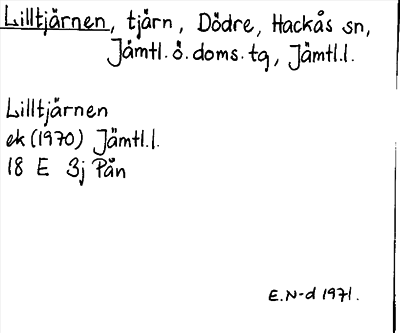 Lilltjärnen, tjärn, Dödre, Hackås sn,
Jämtl. ö. doms. tg, Jämtl.l.
Lilltjärnen
ek (1970) Jämtl.l.
18 E 3j Pån
E.N-d 1971.